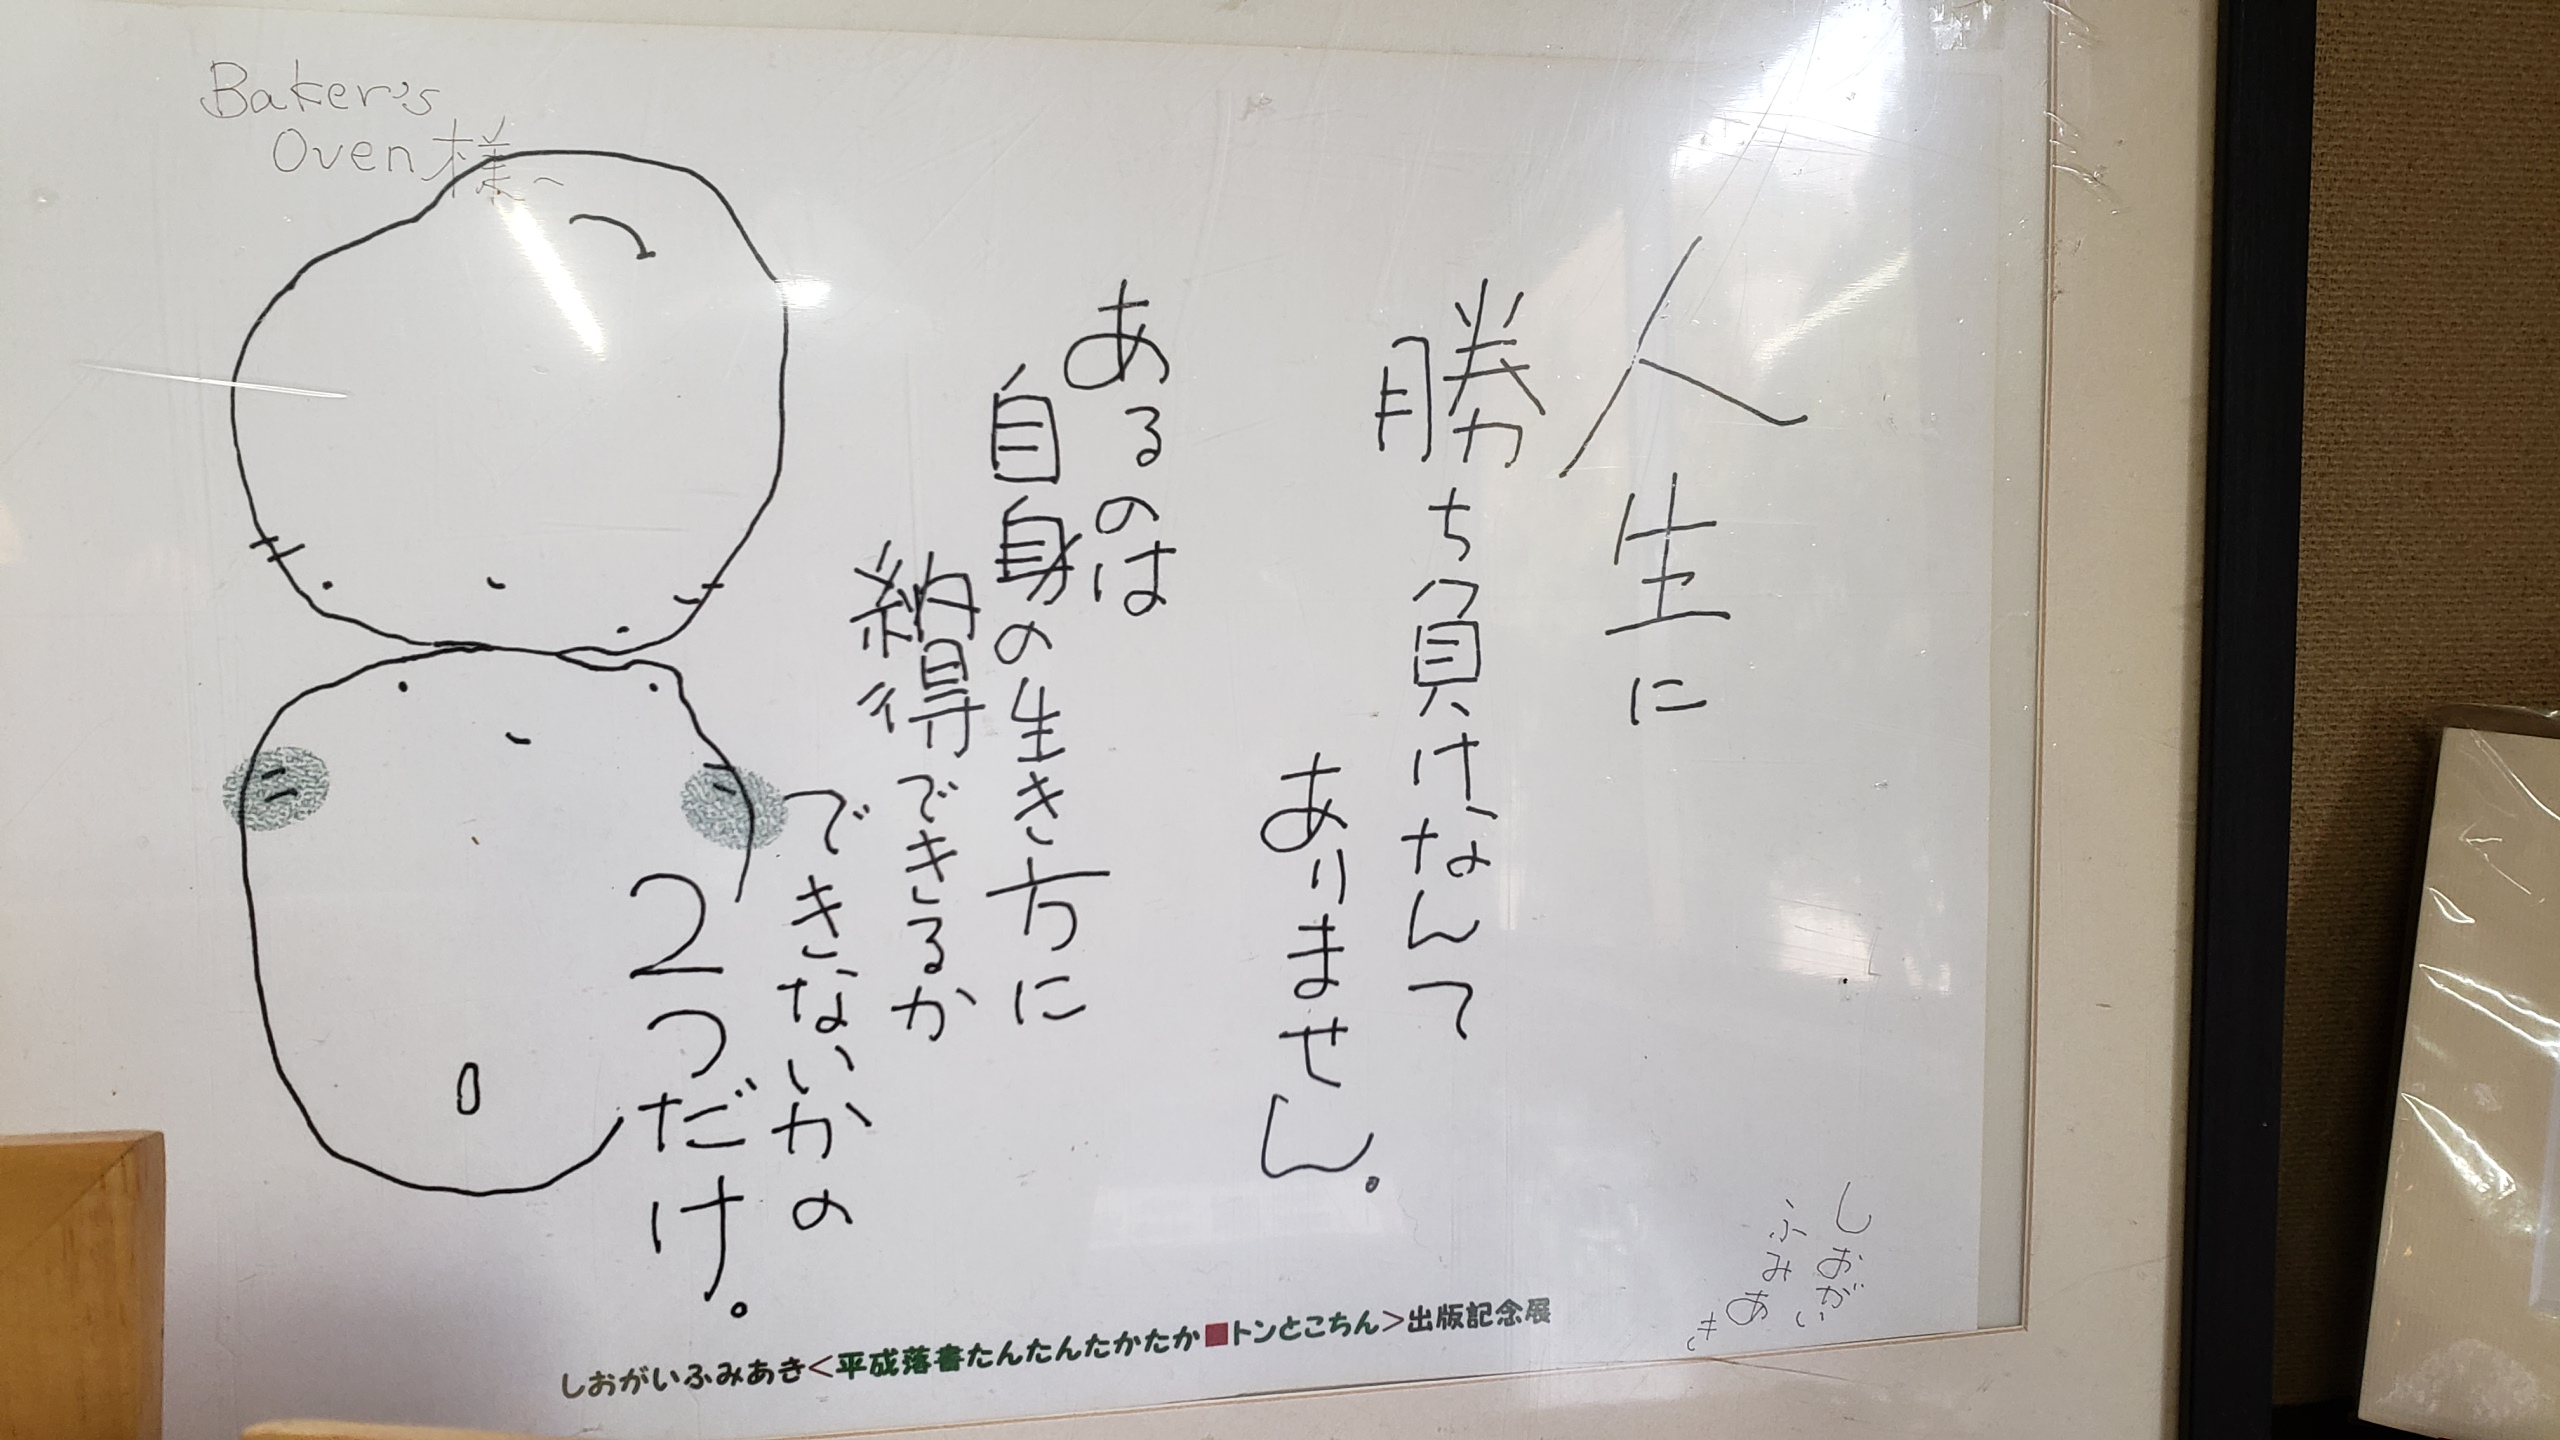 Baker's
Oven様へ
人生に
勝ち負けなんて
ありません。
あるのは
自身の生き方に
納得できるか
できないかの
2つだけ。
しおがい
ふみあき
しおがいふみあき<平成落書たんたんたかたか■トンとこちん>出版記念展